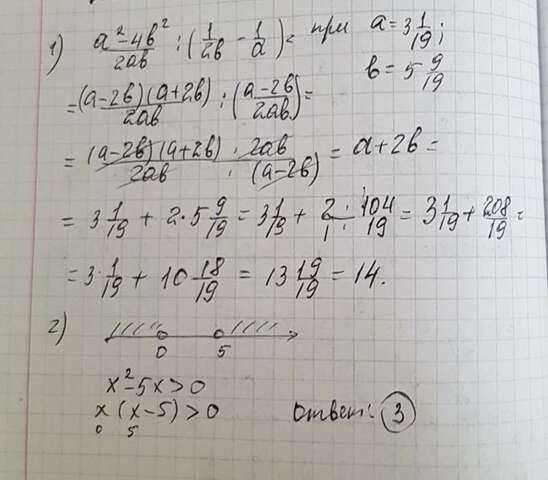 1) (a²-4b²)/2ab : (1/2b - 1/a) = при a = 3 1/19;
b = 5 9/19
= (a-2b)(a+2b)/2ab : (a-2b/2ab) =
= (a-2b)(a+2b) · 2ab / 2ab · (a-2b) = a+2b =
= 3 1/19 + 2·5 9/19 = 3 1/19 + 2/1 · 104/19 = 3 1/19 + 208/19 =
= 3 1/19 + 10 18/19 = 13 19/19 = 14.
2)
0 5
x²-5x>0
x(x-5)>0 Ответ: 3
0 5